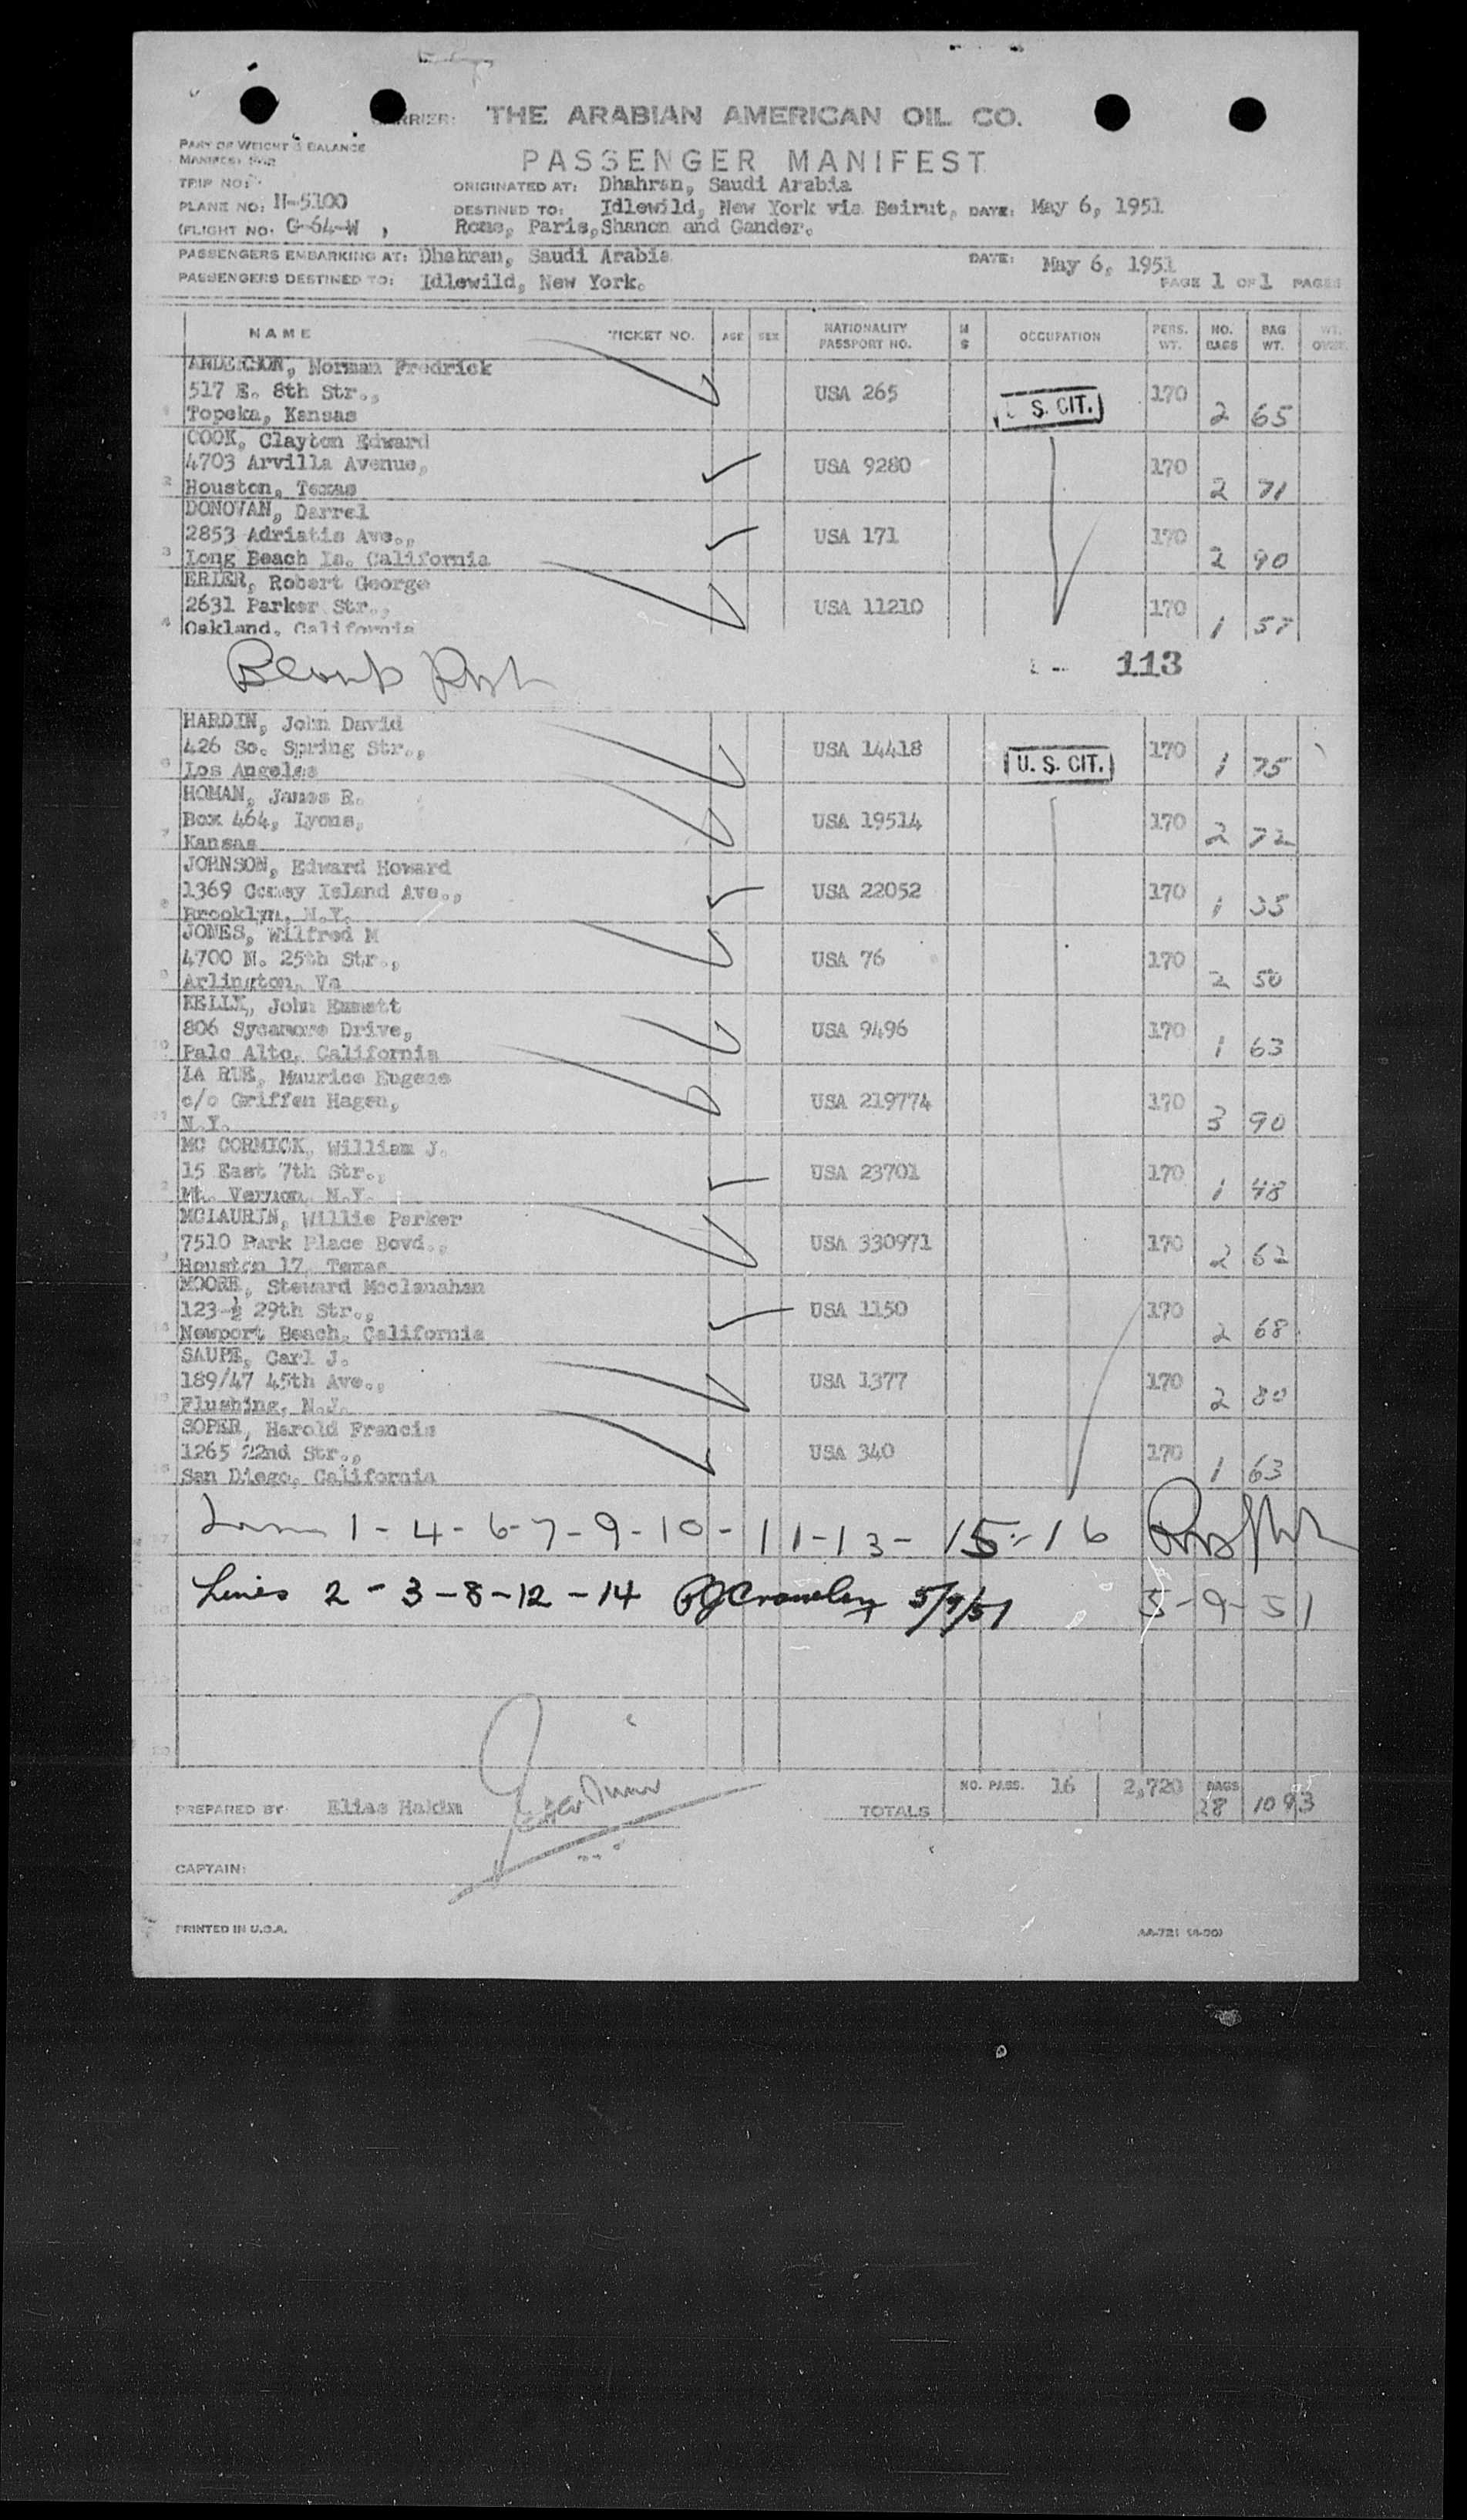 CARRIER: THE ARABIAN AMERICAN OIL CO.
PART OF WEIGHT & BALANCE
MANIFEST
PASSENGER MANIFEST
TRIP NO:
ORIGINATED AT: Dhahran, Saudi Arabia
PLANE NO: N-5100
DESTINED TO: Idlewild, New York via Beirut, DATE: May 6, 1951
(FLIGHT NO. G-64-W )
Rome, Paris, Shanon and Gander.
PASSENGERS EMBARKING AT: Dhahran, Saudi Arabia DATE: May 6, 1951
PASSENGERS DESTINED TO: Idlewild, New York. PAGE 1 OF 1 PAGES
NAME TICKET NO. AGE SEX NATIONALITY PASSPORT NO. M S OCCUPATION PERS. WT. NO. BAGS BAG WT. WT. OVER
ANDERSON, Norman Fredrick
517 E. 8th Str., USA 265 U. S. CIT. 170
1 Topeka, Kansas 2 65
COOK, Clayton Edward
4703 Arvilla Avenue, USA 9280 170
2 Houston, Texas 2 71
DONOVAN, Darrel
2853 Adriatis Ave., USA 171 170
3 Long Beach Is. California 2 90
ERIER, Robert George
2631 Parker Str., USA 11210 170
4 Oakland, California 1 57
113
HARDIN, John David
426 So. Spring Str., USA 14418 U. S. CIT. 170
6 Los Angeles 1 75
HOMAN, James R.
Box 464, Lyons, USA 19514 170
7 Kansas 2 72
JOHNSON, Edward Howard
1369 Coney Island Ave., USA 22052 170
8 Brooklyn, N.Y. 1 35
JONES, Wilfred M
4700 N. 25th Str., USA 76 170
9 Arlington, Va 2 50
KELLY, John Emmett
806 Sycamore Drive, USA 9496 170
10 Palo Alto, California 1 63
LA RUE, Maurice Eugene
c/o Griffen Hagen, USA 219774 170
11 N.Y. 3 90
MC CORMICK, William J.
15 East 7th Str., USA 23701 170
12 Mt. Vernon, N.Y. 1 48
MCLAURIN, Willie Parker
7510 Park Place Bovd., USA 330971 170
13 Houston 17, Texas 2 62
MOORE, Steward Mcclanahan
123-½ 29th Str., USA 1150 170
14 Newport Beach, California 2 68
SAUPE, Carl J.
189/47 45th Ave., USA 1377 170
15 Flushing, N.J. 2 80
SOPER, Harold Francis
1265 22nd Str., USA 340 170
16 San Diego, California 1 63
1-4-6-7-9-10-11-13-15-16
Lines 2-3-8-12-14 5/9/51 5-9-51
NO. PASS. 16 2,720 BAGS
PREPARED BY Elias Hakim TOTALS 28 1093
CAPTAIN:
PRINTED IN U.S.A.